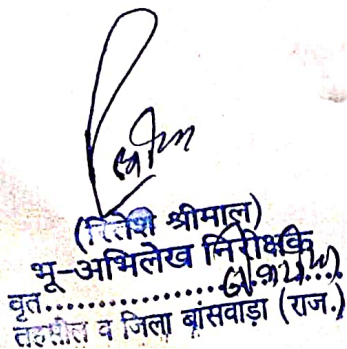 (रितेश श्रीमाल)
भू-अभिलेख निरीक्षक
वृत..............................
तहसील व जिला बांसवाड़ा (राज.)